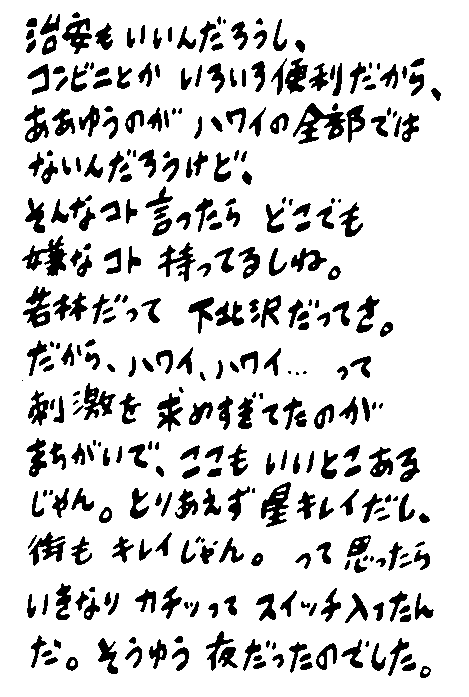 治安もいいんだろうし、
コンビニとか いろいろ便利だから、
ああゆうのが ハワイの全部では
ないんだろうけど、
そんなコト 言ったら どこでも
嫌なコト 持ってるしね。
若林だって 下北沢だってさ。
だから、ハワイ、ハワイ… って
刺激を 求めすぎてたのが
まちがいで、ここも いいとこある
じゃん。とりあえず 星キレイだし、
街も キレイじゃん。 って 思ったら
いきなり カチッって スイッチ入ったん
だ。そうゆう 夜だったのでした。